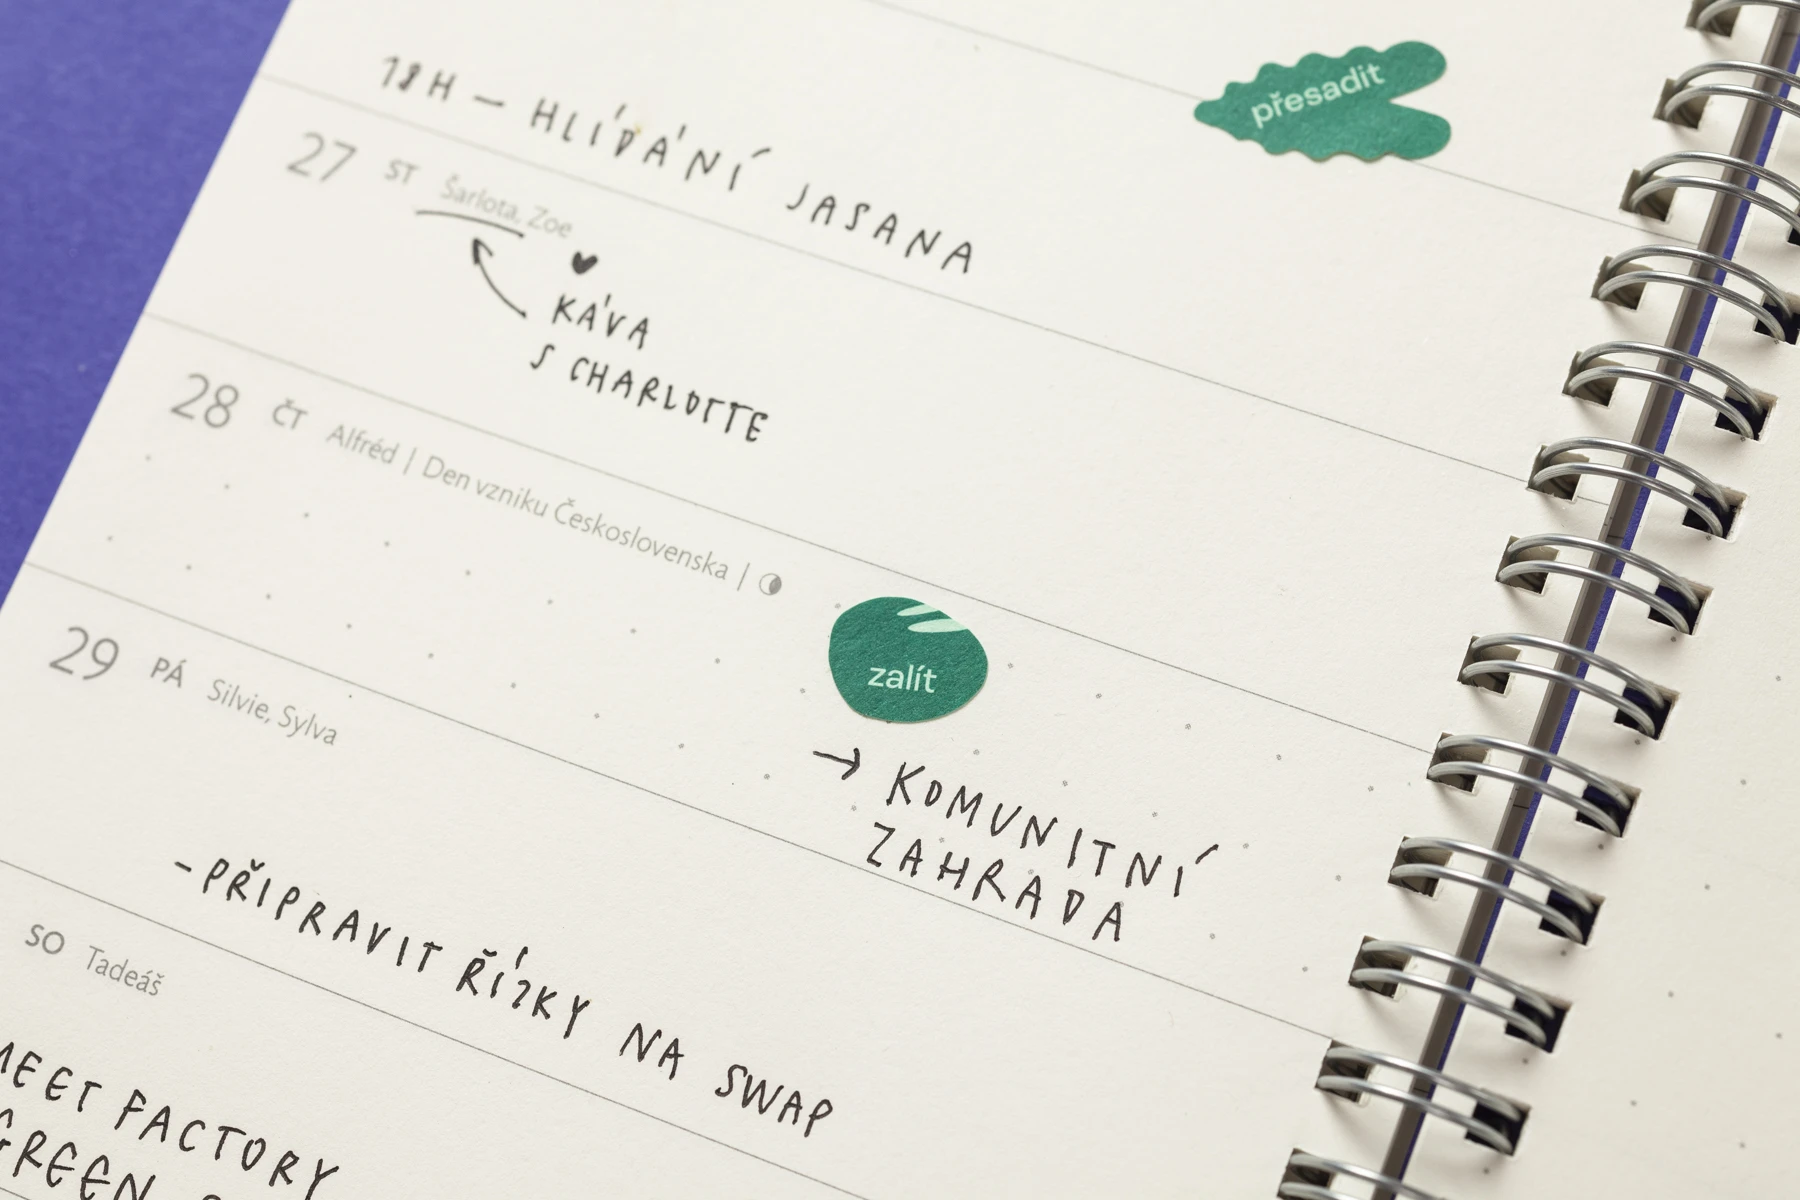 přesadit
18H – HLÍDÁNÍ JASANA
27 ST Šarlota, Zoe
KÁVA
S CHARLOTTE
28 ČT Alfréd | Den vzniku Československa |
zalít
→ KOMUNITNÍ
ZAHRADA
29 PÁ Silvie, Sylva
-PŘIPRAVIT ŘÍZKY NA SWAP
SO Tadeáš
MEET FACTORY
GREEN